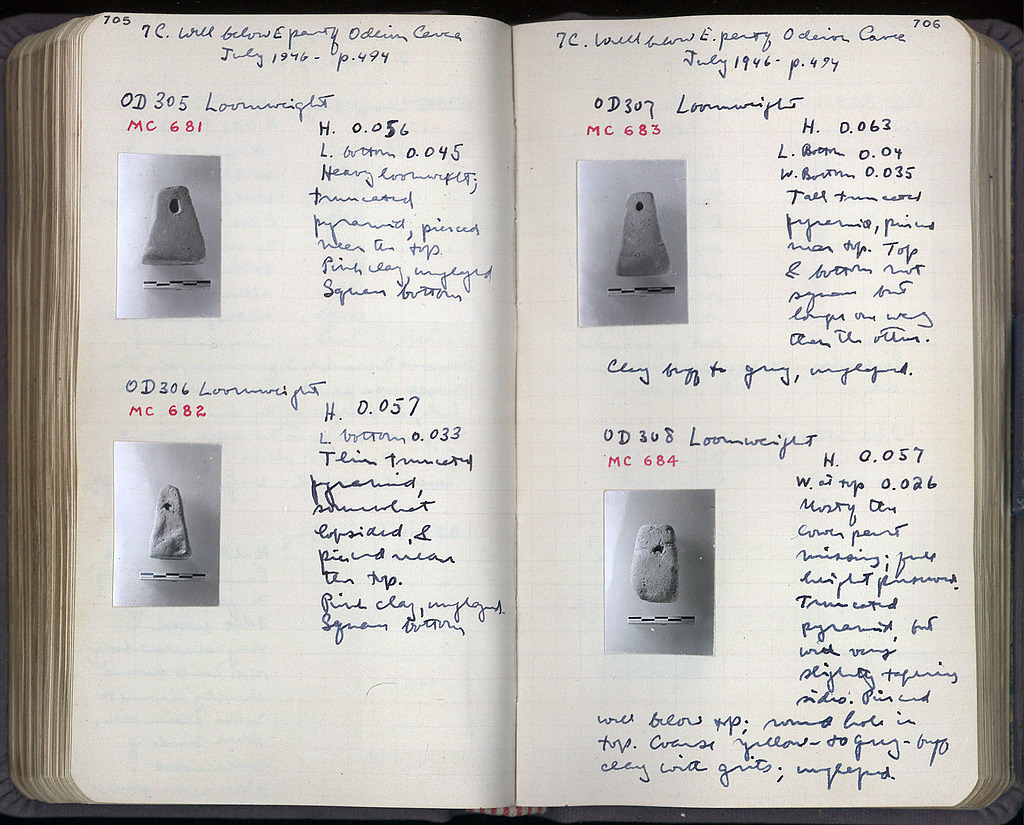 705
7C. Well below E part of Odeion Cavea
July 1946 - p.494
OD 305 Loomweight
MC 681
H. 0.056
L. bottom 0.045
Heavy loomweight;
truncated
pyramid, pierced
near the top.
Pink clay, unglazed
Square bottom
OD 306 Loomweight
MC 682
H. 0.057
L. bottom 0.033
Thin truncated
pyramid,
somewhat
lopsided, &
pierced near
the top.
Pink clay, unglazed
Square bottom
706
7C. Well below E. part of Odeion Cavea
July 1946 - p.494
OD 307 Loomweight
MC 683
H. 0.063
L. Bottom 0.04
W. Bottom 0.035
Tall truncated
pyramid, pierced
near top. Top
& bottom not
square but
longer one way
than the other.
Clay buff to grey, unglazed.
OD 308 Loomweight
MC 684
H. 0.057
W. at top 0.026
Mostly the
lower part
missing; full
height preserved.
Truncated
pyramid, but
with very
slightly tapering
sides. Pierced
well below top; round hole in
top. Coarse yellow- to grey-buff
clay with grits; unglazed.